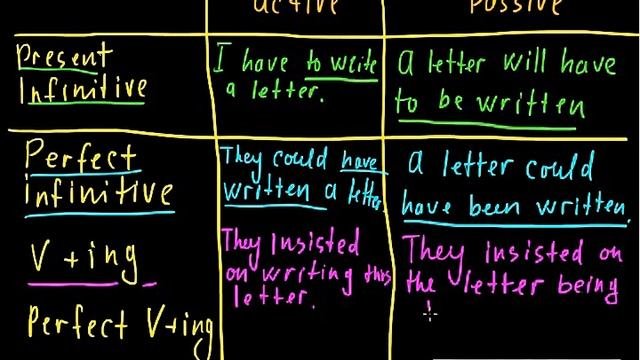 active
Possive
Present
Infinitive
I have to write
a letter.
a letter will have
to be written
Perfect
infinitive
They could have
written a letter.
a letter could
have been written.
V+ing
They Insisted
on writing this
letter.
They insisted on
the letter being
Perfect V+ing